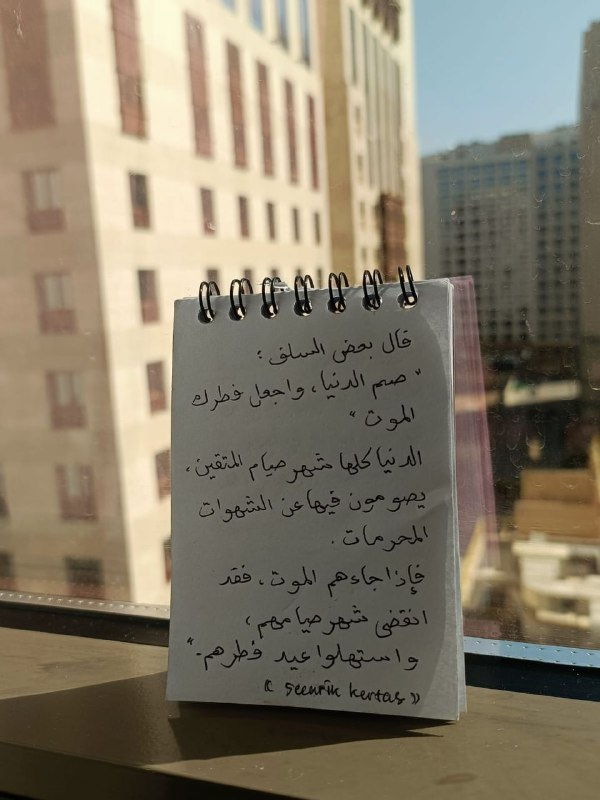 قال بعض السلف :
" صم الدنيا، واجعل فطرك
الموت "
الدنيا كلها شهر صيام المتقين،
يصومون فيها عن الشهوات
المحرمات .
فإذا جاءهم الموت، فقد
انقضى شهر صيامهم،
واستهلوا عيد فطرهم."
« seenrik kertas »